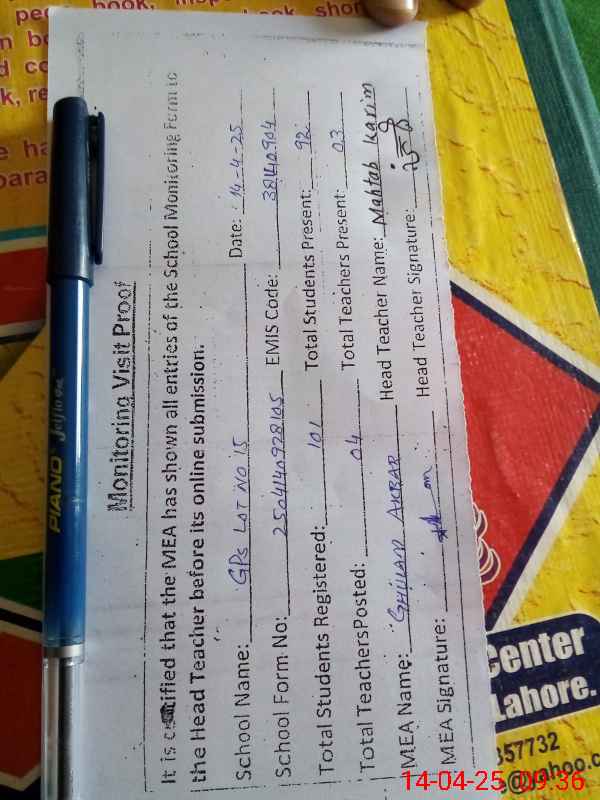 Monitoring Visit Proof
It is certified that the MEA has shown all entries of the School Monitoring Form to
the Head Teacher before its online submission.
School Name: GPS LOT NO 15 Date: 14-4-25
School Form No: 2504140928105 EMIS Code: 38140904
Total Students Registered: 101 Total Students Present: 92
Total TeachersPosted: 04 Total Teachers Present: 03
MEA Name: GHULAM AKBAR Head Teacher Name: Mahtab Karim
MEA Signature: Head Teacher Signature:
PIANO
center
Lahore.
357732
@yahoo.c
14-04-25 09:36